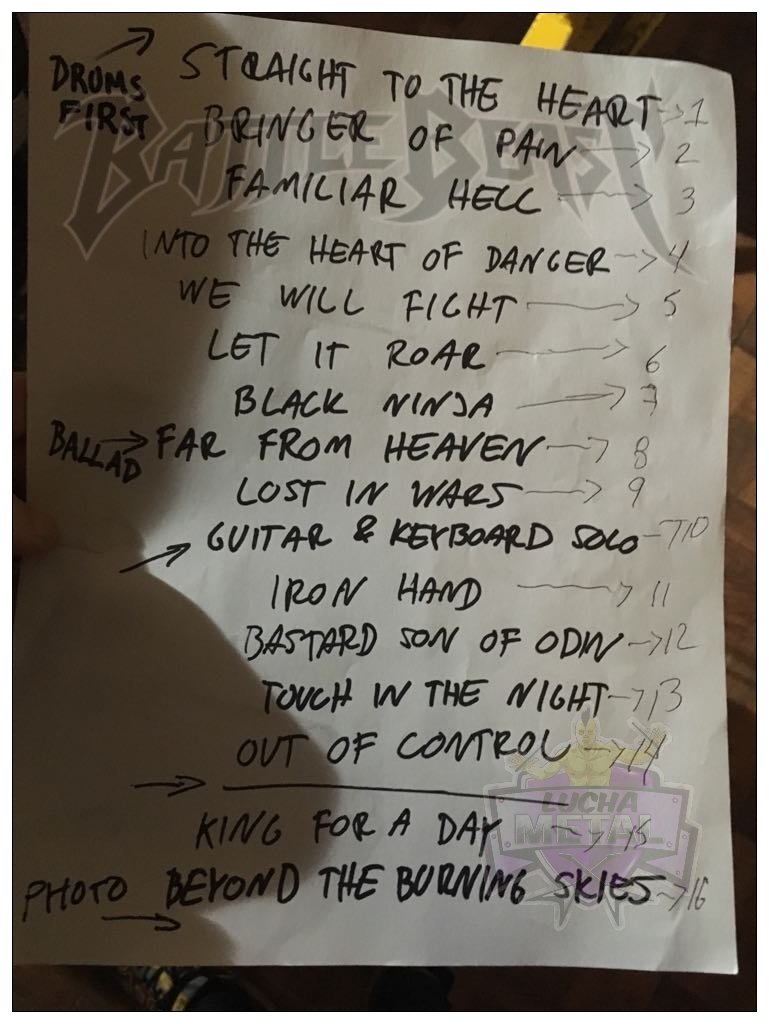 DRUMS FIRST
STRAIGHT TO THE HEART → 1
BRINGER OF PAIN → 2
FAMILIAR HELL → 3
INTO THE HEART OF DANGER → 4
WE WILL FIGHT → 5
LET IT ROAR → 6
BLACK NINJA → 7
BALLAD → FAR FROM HEAVEN → 8
LOST IN WARS → 9
→ GUITAR & KEYBOARD SOLO → 10
IRON HAND → 11
BASTARD SON OF ODIN → 12
TOUCH IN THE NIGHT → 13
OUT OF CONTROL → 14
KING FOR A DAY → 15
PHOTO → BEYOND THE BURNING SKIES → 16
BATTLE BEAST
LUCHA
METAL